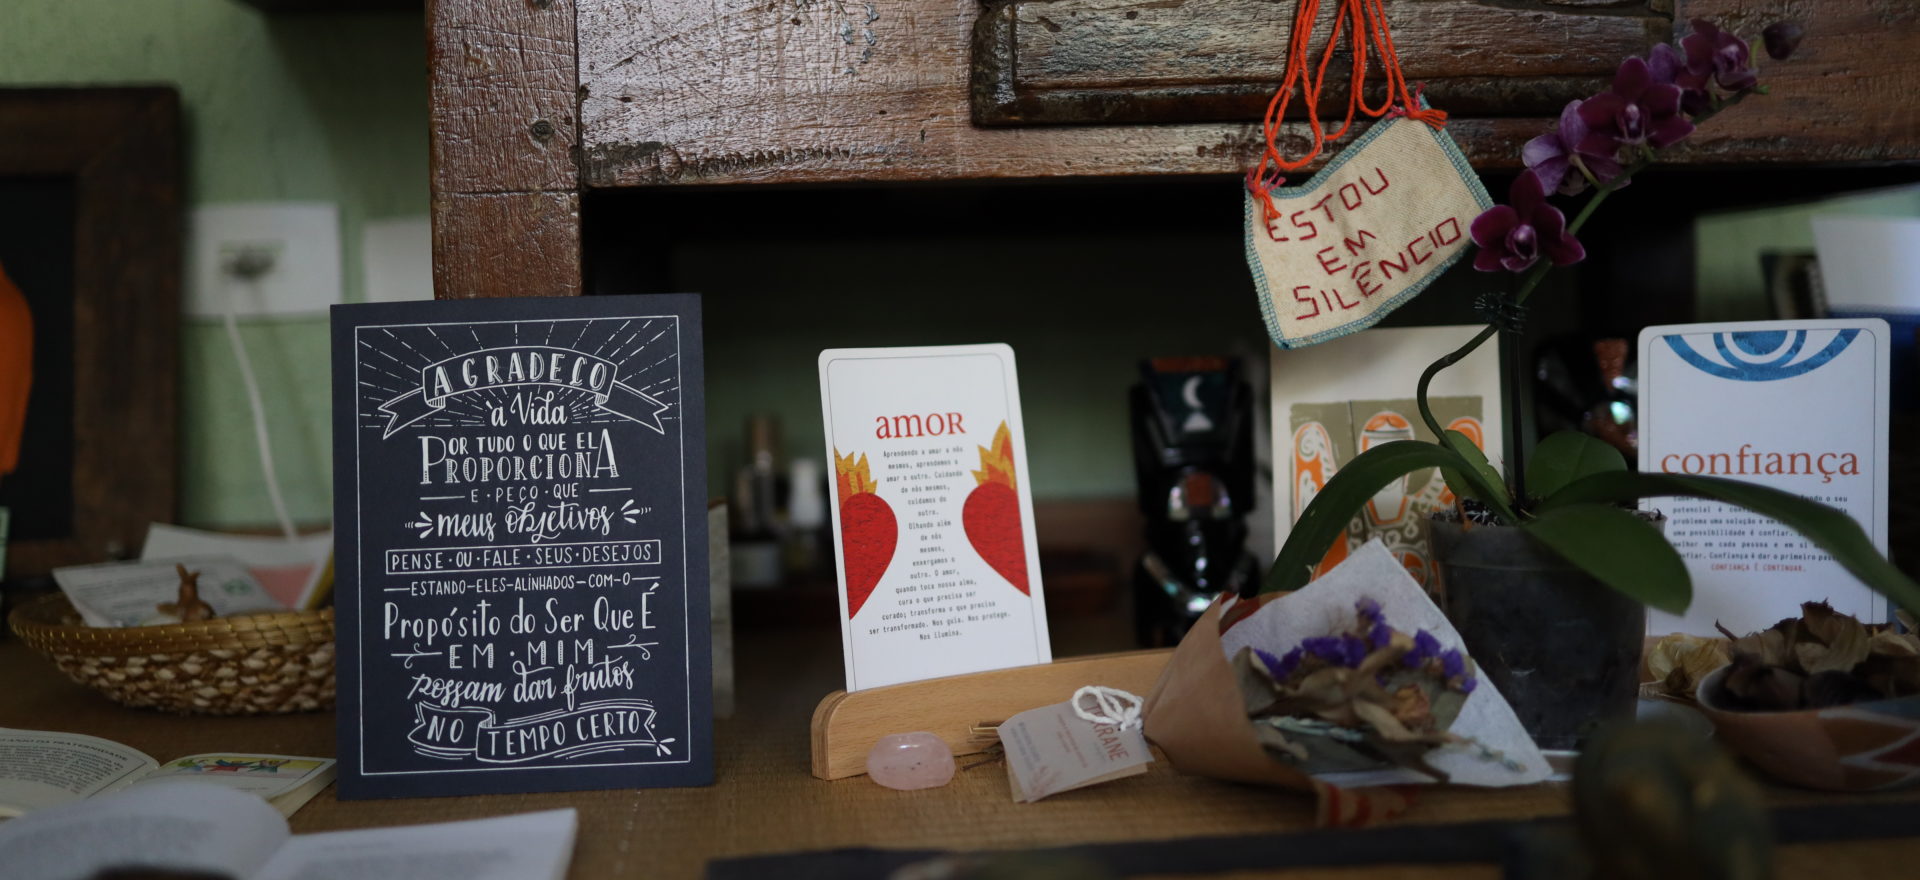 AGRADEÇO
à Vida
POR TUDO O QUE ELA
PROPORCIONA
E · PEÇO · QUE
meus objetivos
PENSE · OU · FALE · SEUS · DESEJOS
ESTANDO-ELES-ALINHADOS-COM-O
Propósito do Ser Que É
EM · MIM
possam dar frutos
NO TEMPO CERTO
amor
Aprendendo a amar a nós
mesmos, aprendemos a
amar o outro. Cuidando
de nós mesmos,
cuidamos do
outro.
Olhando além
de nós
mesmos,
enxergamos o
outro. O amor,
quando toca nossa alma,
cura o que precisa ser
curado; transforma o que precisa
ser transformado. Nos guia. Nos protege.
Nos ilumina.
ESTOU
EM
SILÊNCIO
confiança
o seu
potencial é
problema uma solução e em
uma possibilidade é confiar.
melhor em cada pessoa e em si
confiar. Confiança é dar o primeiro
CONFIANÇA É CONTINUAR.